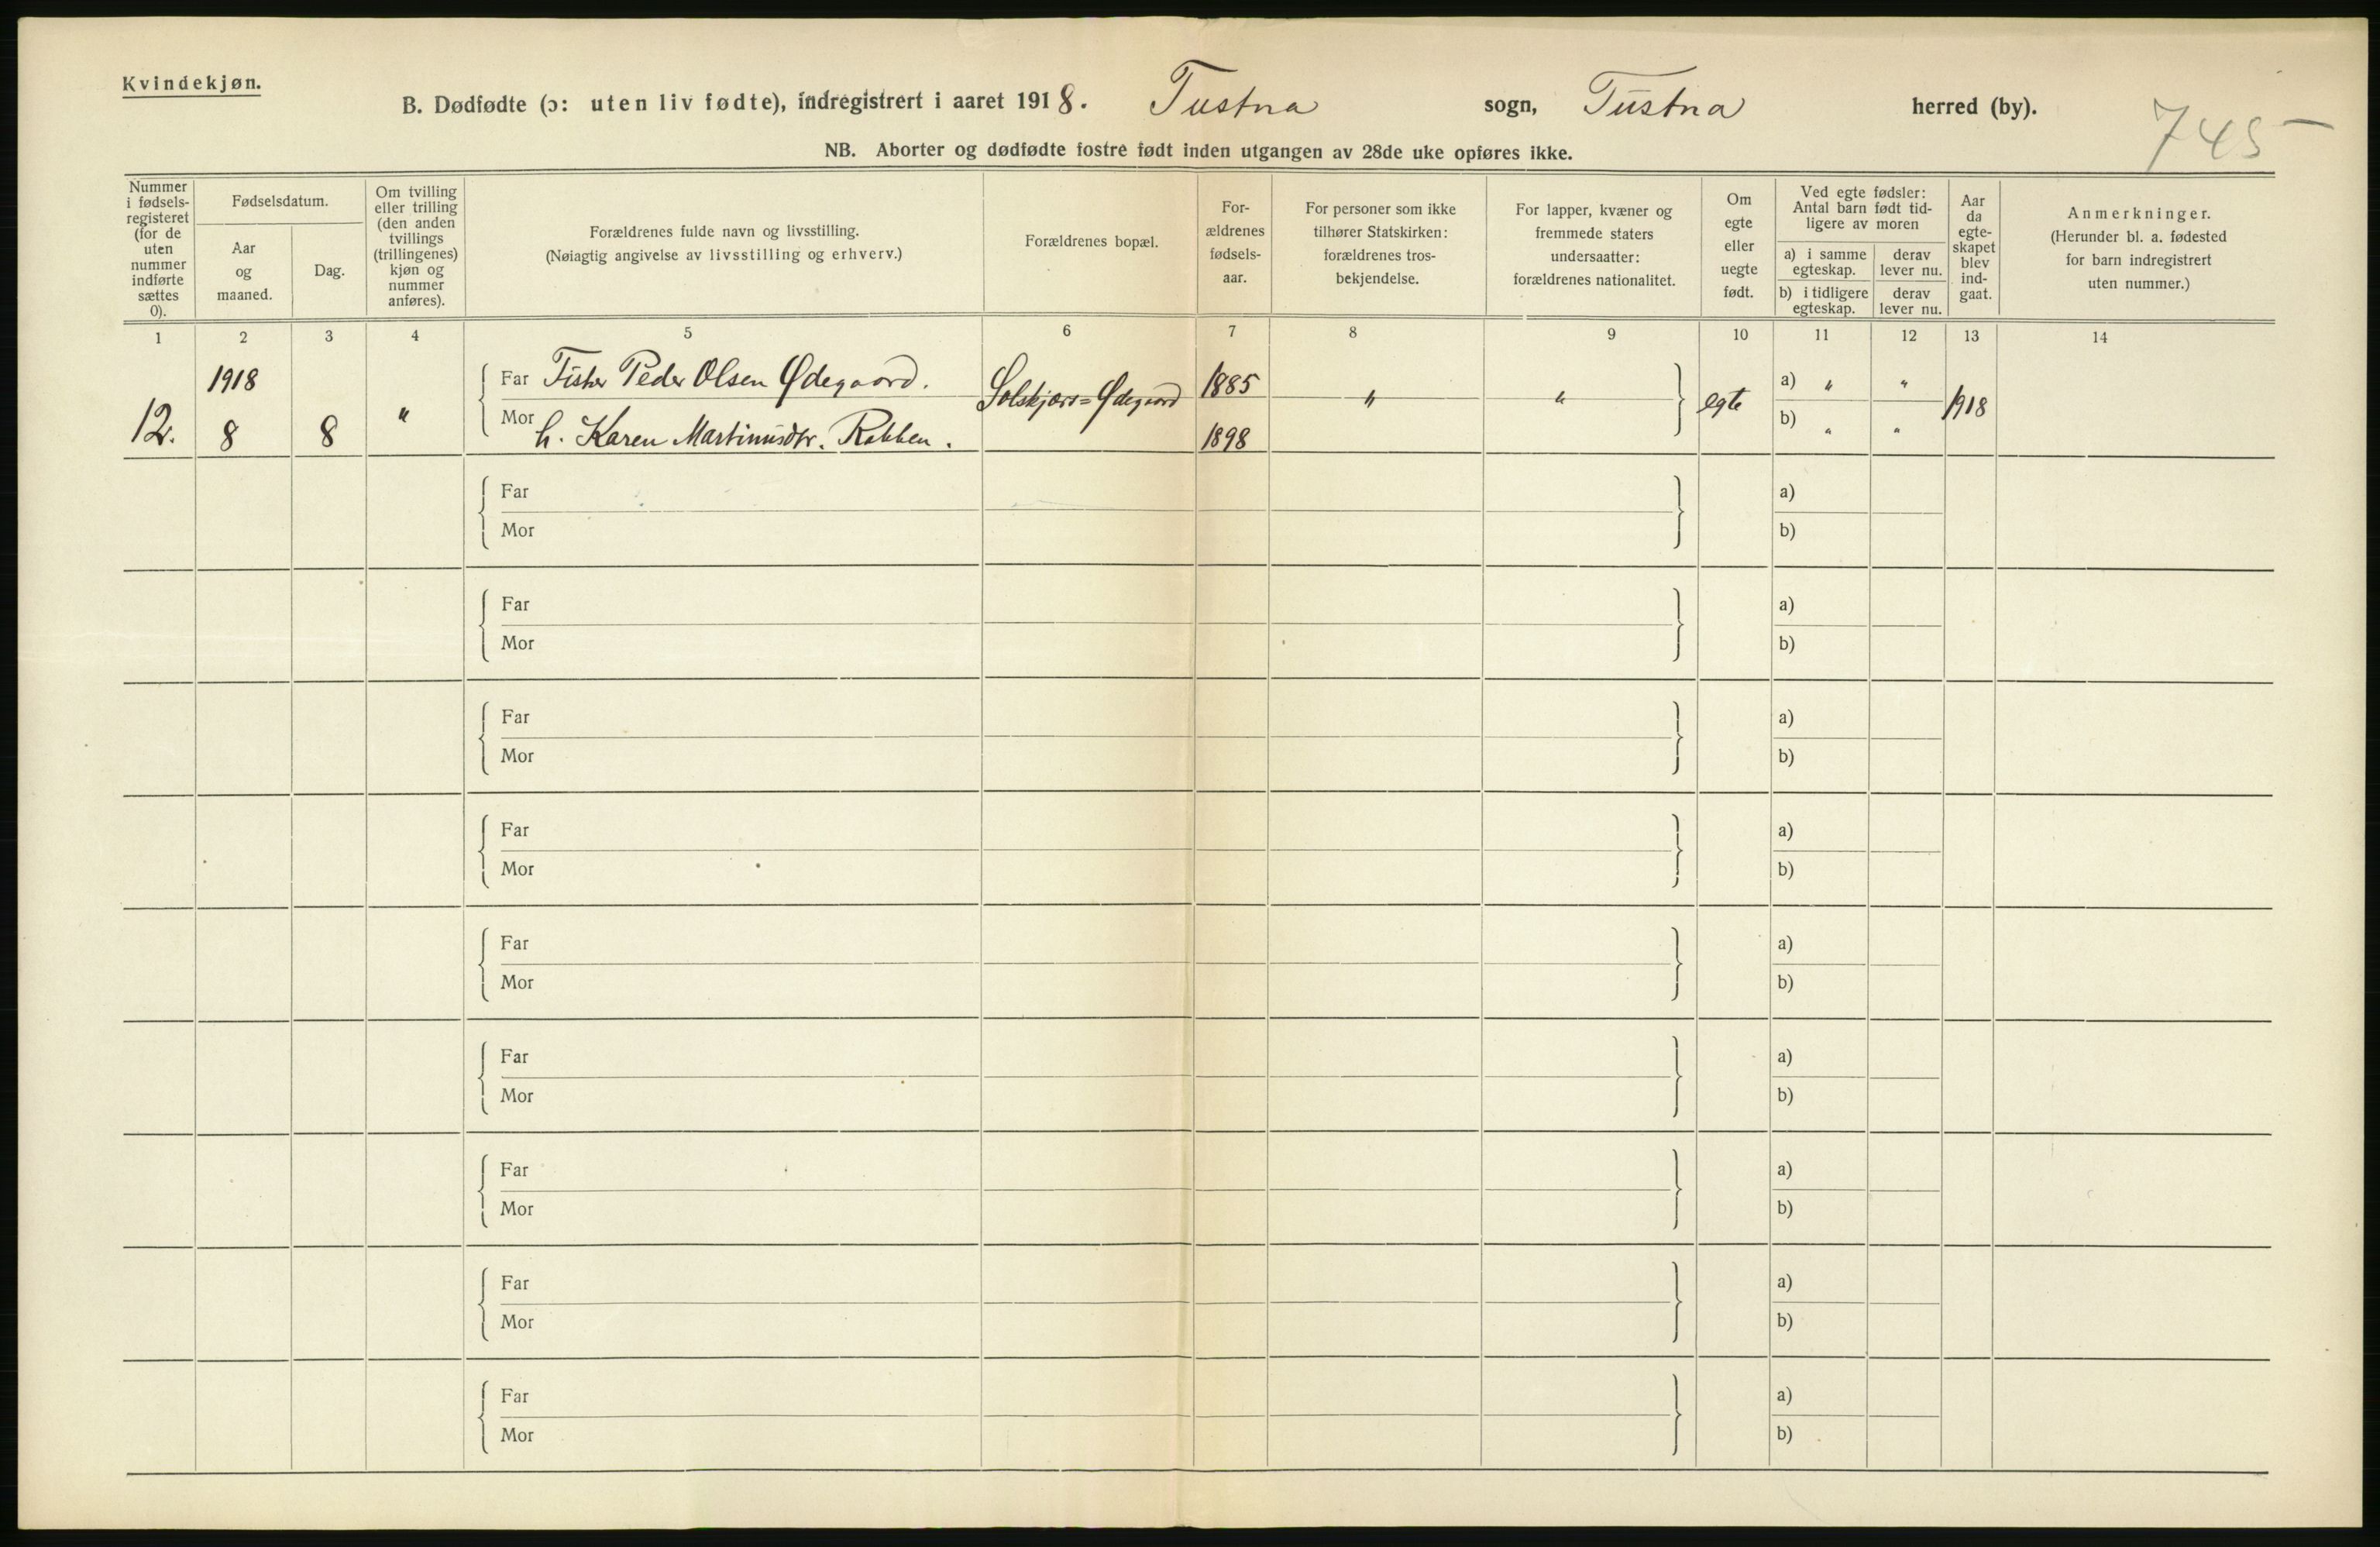 Kvindekjøn.
B. Dødfødte (ɔ: uten liv fødte), indregistrert i aaret 1918. Tustna sogn, Tustna herred (by).
745
NB. Aborter og dødfødte fostre født inden utgangen av 28de uke opføres ikke.
Nummer i fødsels-registeret (for de uten nummer indførte sættes 0).
Fødselsdatum.
Aar og maaned.
Dag.
Om tvilling eller trilling (den anden tvillings (trillingenes) kjøn og nummer anføres).
Forældrenes fulde navn og livsstilling.
(Nøiagtig angivelse av livsstilling og erhverv.)
Forældrenes bopæl.
For-ældrenes fødsels-aar.
For personer som ikke tilhører Statskirken: forældrenes tros-bekjendelse.
For lapper, kvæner og fremmede staters undersaatter: forældrenes nationalitet.
Om egte eller uegte født.
Ved egte fødsler: Antal barn født tid-ligere av moren
a) i samme egteskap.
derav lever nu.
b) i tidligere egteskap.
derav lever nu.
Aar da egte-skapet blev ind-gaat.
Anmerkninger.
(Herunder bl. a. fødested for barn indregistrert uten nummer.)
1 2 3 4 5 6 7 8 9 10 11 12 13 14
1918 Far Fisker Peder Olsen Ødegaard. 1885 a) " "
12. 8 8 " Solskjærs=Ødegaard " " egte 1918
Mor h. Karen Martinusdtr. Rabben. 1898 b) " "
Far a)
Mor b)
Far a)
Mor b)
Far a)
Mor b)
Far a)
Mor b)
Far a)
Mor b)
Far a)
Mor b)
Far a)
Mor b)
Far a)
Mor b)
Far a)
Mor b)